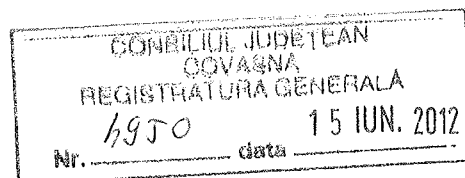 CONSILIUL JUDEȚEAN
COVASNA
REGISTRATURA GENERALĂ
Nr. 4950 data 15 IUN. 2012